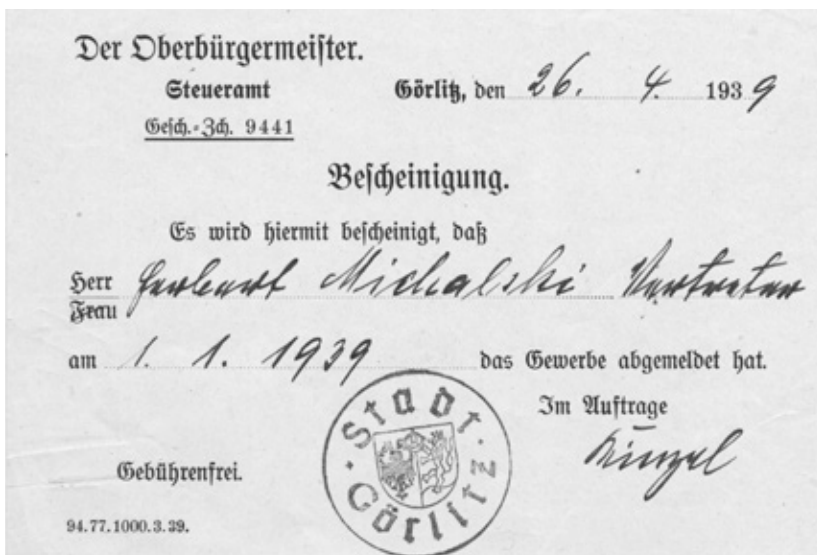 Der Oberbürgermeister.
Steueramt
Görlitz, den 26. 4. 1939
Gesch.-Zch. 9441
Bescheinigung.
Es wird hiermit bescheinigt, daß
Herr Herbert Michalski Vertreter
Frau
am 1. 1. 1939 das Gewerbe abgemeldet hat.
Im Auftrage
Gebührenfrei.
Stadt Görlitz
94.77.1000.3.39.